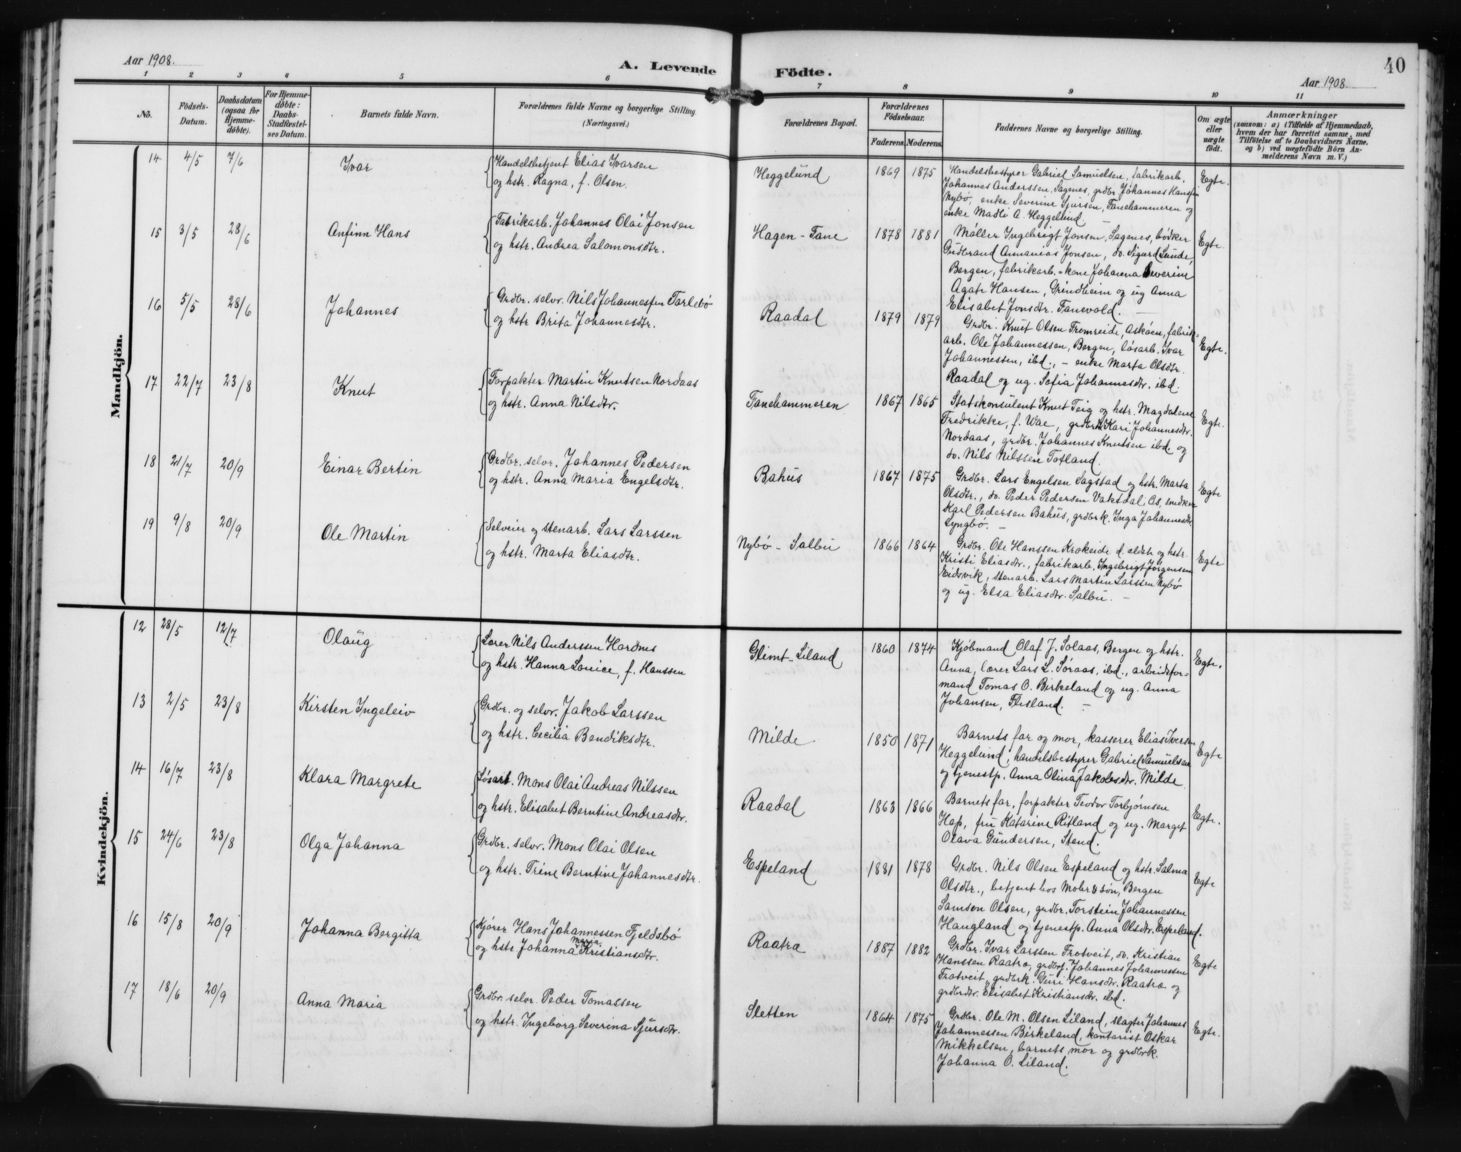 Aar 1908.
A. Levende Fødte.
40
Aar 1908.
1 2 3 4 5 6 7 8 9 10 11
No. Fødsels-Datum. Daabsdatum (ogsaa for Hjemmedøbte). For Hjemmedøbte: Daabs-Stadfæstelses Datum. Barnets fulde Navn. Forældrenes fulde Navne og borgerlige Stilling (Næringsvei.) Forældrenes Bopæl. Forældrenes Fødselsaar. Faderens Moderens Faddernes Navne og borgerlige Stilling. Om ægte eller uægte født. Anmærkninger
Mandkjøn.
14 4/5 7/6 Ivar
Handelsbetjent Elias Ivarsen
og hstr. Ragna, f. Olsen.
Heggelund 1869 1875
Handelsbestyrer Gabriel Samuelsen, fabrikarb.
Johannes Anderssen, Sagenes, grdbr Johannes Hanssen
Nybø, enke Severine Sjursen, Fanehammeren og
enke Madli A. Heggelund.
Egte.
15 3/5 28/6 Anfinn Hans
Fabrikarb. Johannes Olai Jonsen
og hstr. Andrea Salomonsdtr.
Hagen - Fane 1878 1881
Møller Ingebrigt Jonsen, Sagenes, bødker
Gudbrand Annanias Jonsen, do. Sigurd Lunde,
Bergen, fabrikarb.-kone Johanna Severine
Agate Hansen, Grindheim og ug Anna
Elisabet Jonsdtr. Fanevold.
Egte.
16 5/5 28/6 Johannes
Grdbr. selv. Nils Johannessen Tarlebø
og hstr Brita Johannesdtr.
Raadal 1879 1879
Grdbr. Knut Olsen Tromreide, Askøen, fabrik-
arb. Ole Johannessen, Bergen, løsarb. Ivar
Johannessen, ibd., - enke Marta Olsdtr.
Raadal og ug. Sofia Johannesdtr. ibd.
Egte.
17 22/7 23/8 Knut
Forpakter Martin Knutsen Nordaas
og hstr. Anna Nilsdtr.
Fanehammeren 1867 1865
Statskonsulent Knut Teig og hstr. Magdalene
Fredrikke, f. Wae, grdbrk Kari Johannesdtr.
Nordaas, grdbr. Johannes Knutsen ibd. og
do. Nils Nilssen Totland.
Egte.
18 21/7 20/9 Einar Bertin
Grdbr. selv. Johannes Pedersen
og hstr. Anna Maria Engelsdtr.
Bahus 1867 1875
Grdbr. Lars Engelsen Sagstad og hstr. Marta
Olsdtr., do. Peder Pedersen Vaksdal, Os, snedker
Karl Pedersen Bahus, grdbrk. Inga Johannesdtr
Lyngbø.
Egte
19 9/8 20/9 Ole Martin
Selveier og stenarb. Lars Larssen
og hstr. Marta Eliasdtr.
Nybø - Salbu 1866 1864
Grdbr. Ole Hanssen Krokeide d. eldste og hstr.
Kristi Eliasdtr., fabrikarb. Ingebrigt Jørgensen
Eidsvik, stenarb. Lars Martin Larssen Nybø
og ug. Elsa Eliasdtr. Salbu.
Egte
Kvindekjøn.
12 28/5 12/7 Olaug
Lærer Nils Anderssen Hordnes
og hstr. Hanna Lovice, f. Hanssen
Glimt - Liland 1860 1874
Kjøbmand Olaf J. Solaas, Bergen og hstr.
Anna, lærer Lars L. Søraas, ibd., arbeidsfor-
mand Tomas O. Birkeland og ug. Anna
Johansen, Flisland.
Egte.
13 2/5 23/8 Kirsten Ingeleiv
Grdbr. og selv. Jakob Larssen
og hstr. Cecilia Bendiksdtr.
Milde 1850 1871
Barnets far og mor, kasserer Elias Iversen
Heggelund, handelsbestyrer Gabriel Samuelsen
og tjenestp. Anna Olina Jakobsdtr. Milde
Egte
14 16/7 23/8 Klara Margrete
Løsarb. Mons Olai Andreas Nilssen
og hstr. Elisabet Berntine Andreasdtr.
Raadal 1863 1866
Barnets far, forpakter Teodor Torbjørnsen
Hop, fru Katarine Ritland og ug. Margit
Olava Gundersen, Stend.
Egte.
15 24/6 23/8 Olga Johanna
Grdbr. selv. Mons Olai Olsen
og hstr. Trine Berntine Johannesdtr.
Espeland 1881 1878
Grdbr. Nils Olsen Espeland og hstr. Salma
Olsdtr., betjent hos Mohr & søn, Bergen
Samson Olsen, grdbr. Torstein Johannessen
Haugland og tjenestp. Anna Olsdtr. Espeland.
Egte
16 15/8 20/9 Johanna Bergitta
Kjører Hans Johannessen Fjeldsbø
og hstr Johanna Marie Kristiansdtr.
Raatra 1887 1882
Grdbr. Ivar Larssen Trotveit, do. Kristian
Hanssen Raatra, grdbrf. Johannes Johannessen
Trotveit, grdbrk. Guri Hansdtr. Raatra og
grdbrdtr. Elisabet Kristiansdtr. ibd.
Egte
17 18/6 20/9 Anna Maria
Grdbr. selv. Peder Tomassen
og hstr. Ingeborg Severina Sjursdtr.
Sletten 1864 1875
Grdbr. Ole M. Olsen Liland, slagter Johannes
Johannessen Birkeland, kontorist Oskar
Mikkelsen, barnets mor og grdbrk.
Johanna O. Liland.
Egte.